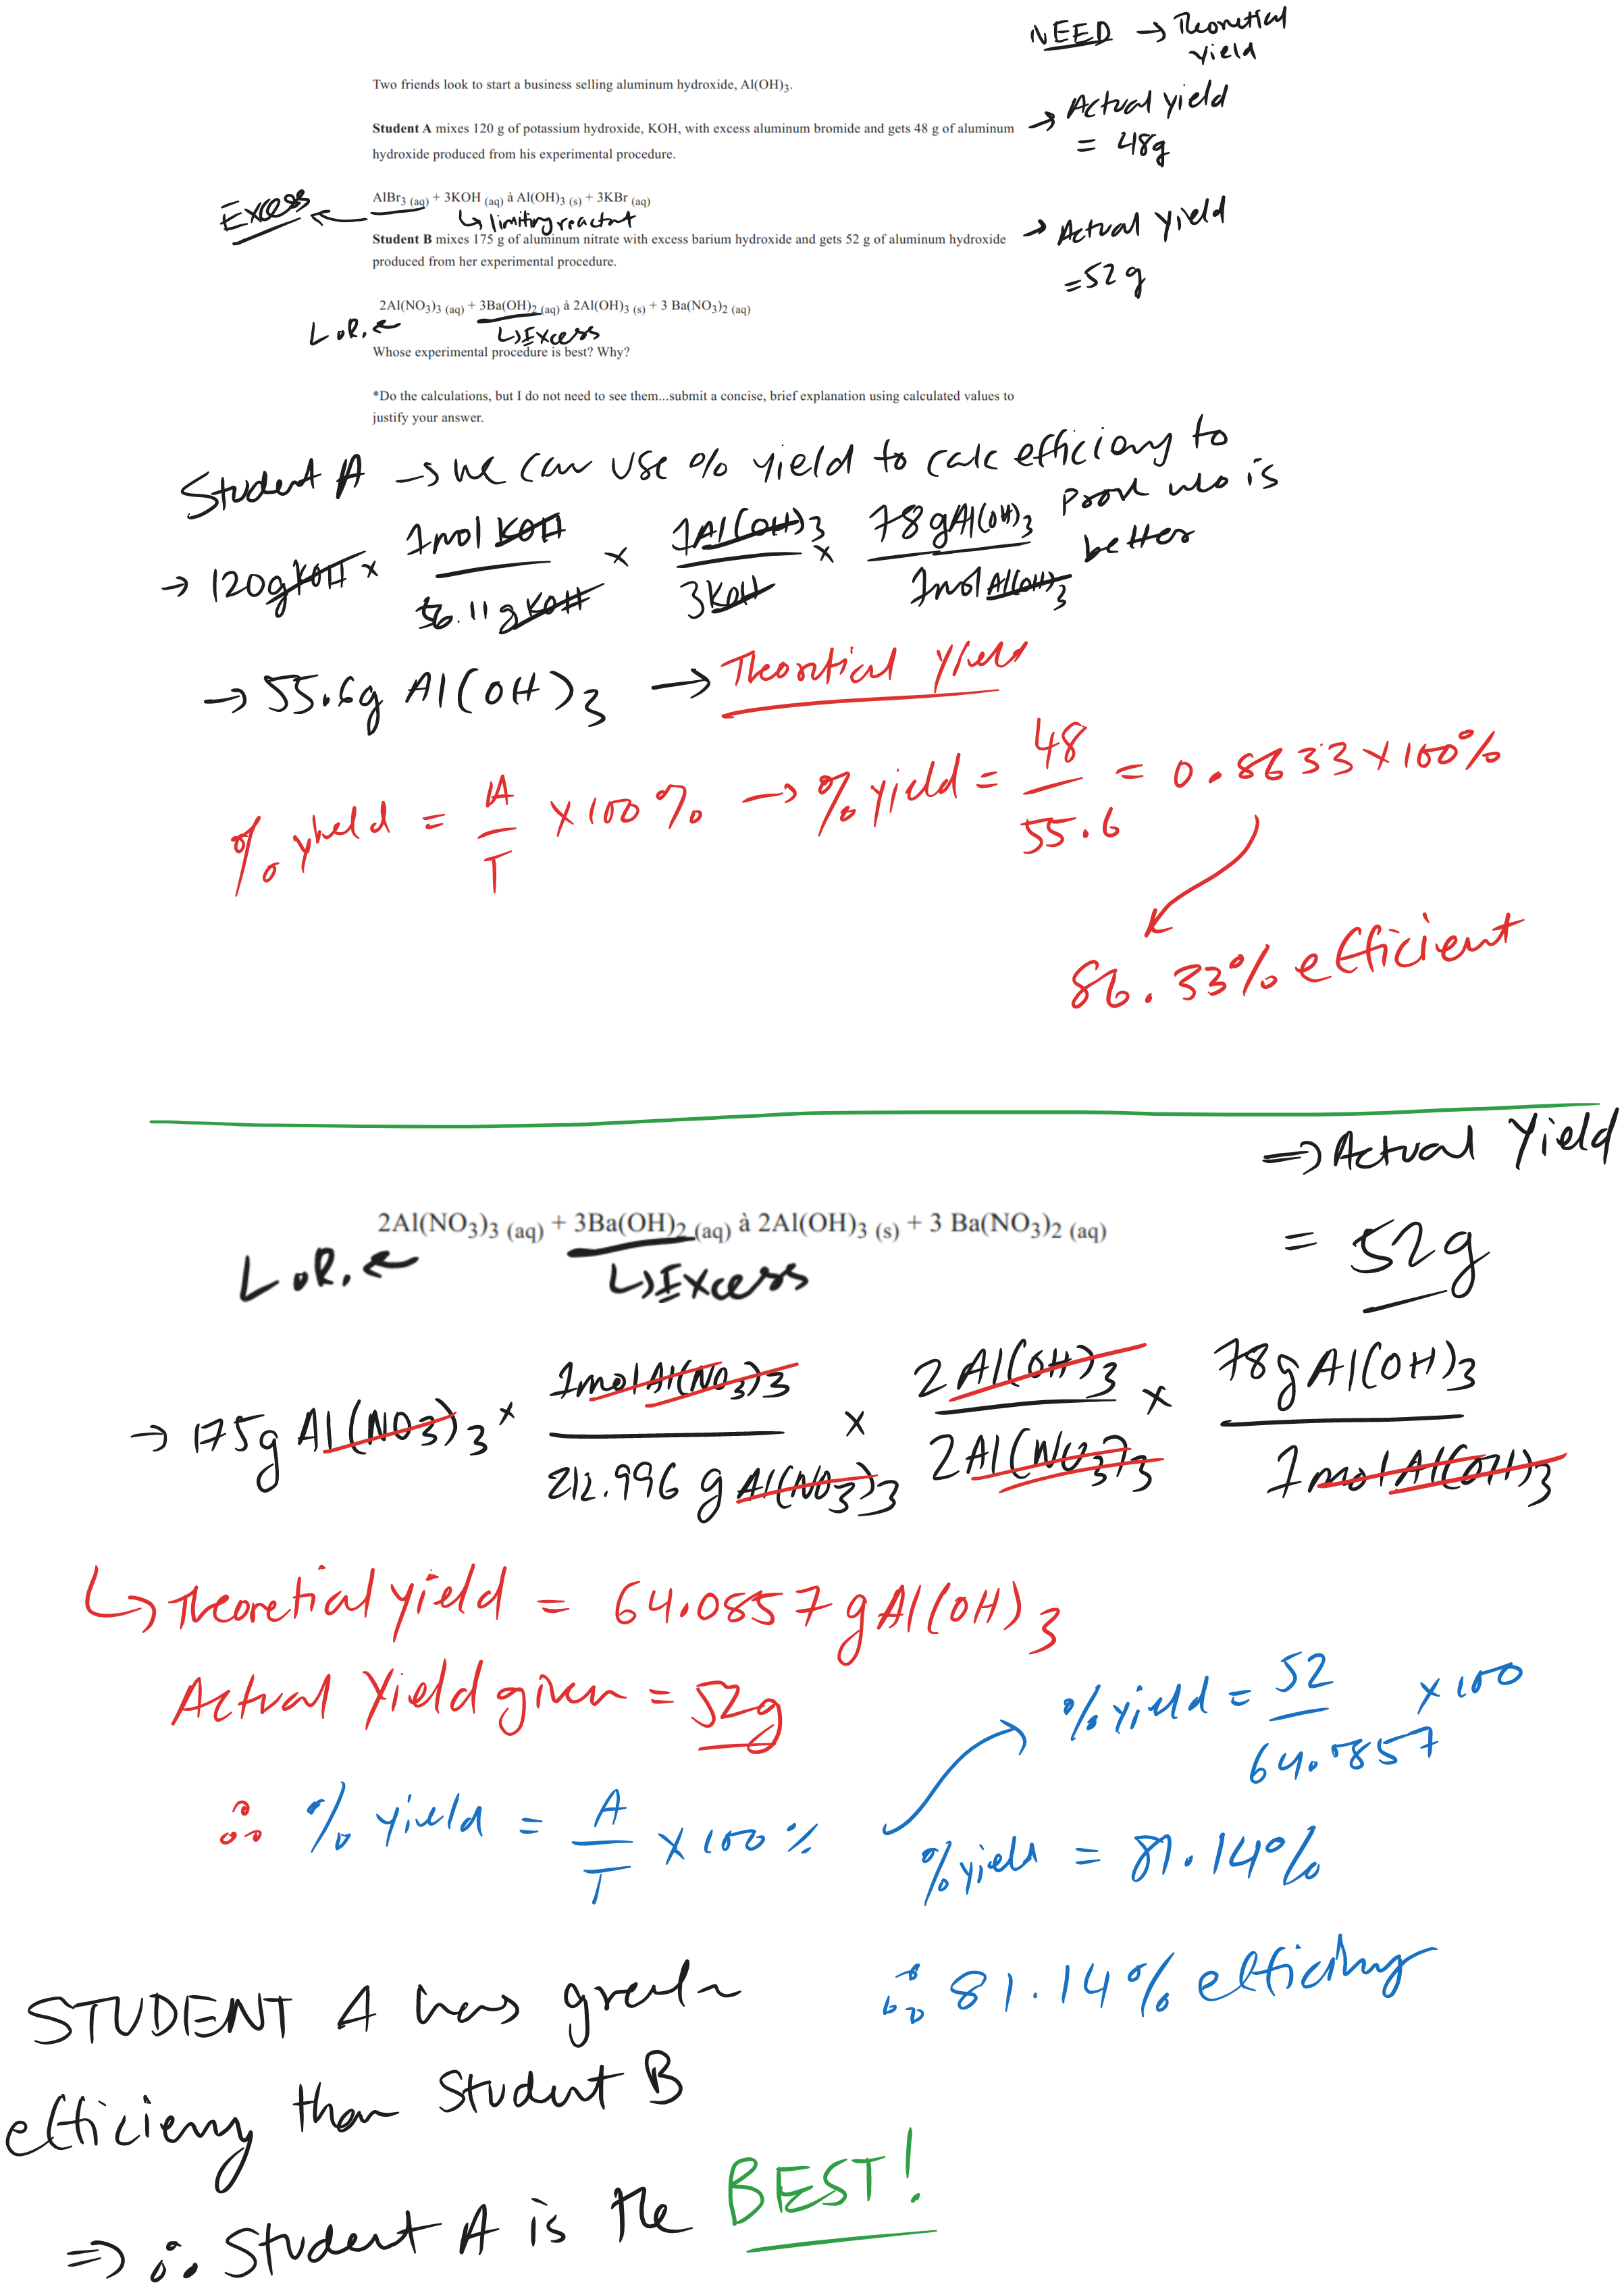 NEED → Theoretial
yield
Two friends look to start a business selling aluminum hydroxide, Al(OH)3.
→ Actual yield
= 48g
Student A mixes 120 g of potassium hydroxide, KOH, with excess aluminum bromide and gets 48 g of aluminum
hydroxide produced from his experimental procedure.
AlBr3 (aq) + 3KOH (aq) à Al(OH)3 (s) + 3KBr (aq)
Excess ←
↳ limiting reactant
→ Actual yield
= 52 g
Student B mixes 175 g of aluminum nitrate with excess barium hydroxide and gets 52 g of aluminum hydroxide
produced from her experimental procedure.
2Al(NO3)3 (aq) + 3Ba(OH)2 (aq) à 2Al(OH)3 (s) + 3 Ba(NO3)2 (aq)
L.R. ←
↳ Excess
Whose experimental procedure is best? Why?
*Do the calculations, but I do not need to see them...submit a concise, brief explanation using calculated values to
justify your answer.
Student A → we can use % yield to calc efficieny to
who is
better
→ 120g KOH × 1mol KOH / 56.11g KOH × 1Al(OH)3 / 3KOH × 78gAl(OH)3 / 1mol Al(OH)3
→ 55.6g Al(OH)3 → Theoretial Yield
% yield = A/T × 100 % → % yield = 48/55.6 = 0.8633 × 100%
86.33% efficient
⇒ Actual Yield
= 52g
2Al(NO3)3 (aq) + 3Ba(OH)2 (aq) à 2Al(OH)3 (s) + 3 Ba(NO3)2 (aq)
L.R. ←
↳ Excess
→ 175g Al(NO3)3 × 1mol Al(NO3)3 / 212.996 g Al(NO3)3 × 2Al(OH)3 / 2Al(NO3)3 × 78g Al(OH)3 / 1mol Al(OH)3
↳ Theoretial yield = 64.0857g Al(OH)3
Actual Yield given = 52g
∴ % yield = A/T × 100 %
% yield = 52/64.0857 × 100
% yield = 81.14%
∴ 81.14%
STUDENT A has
efficieny than Student B
⇒ ∴ Student A is the BEST!